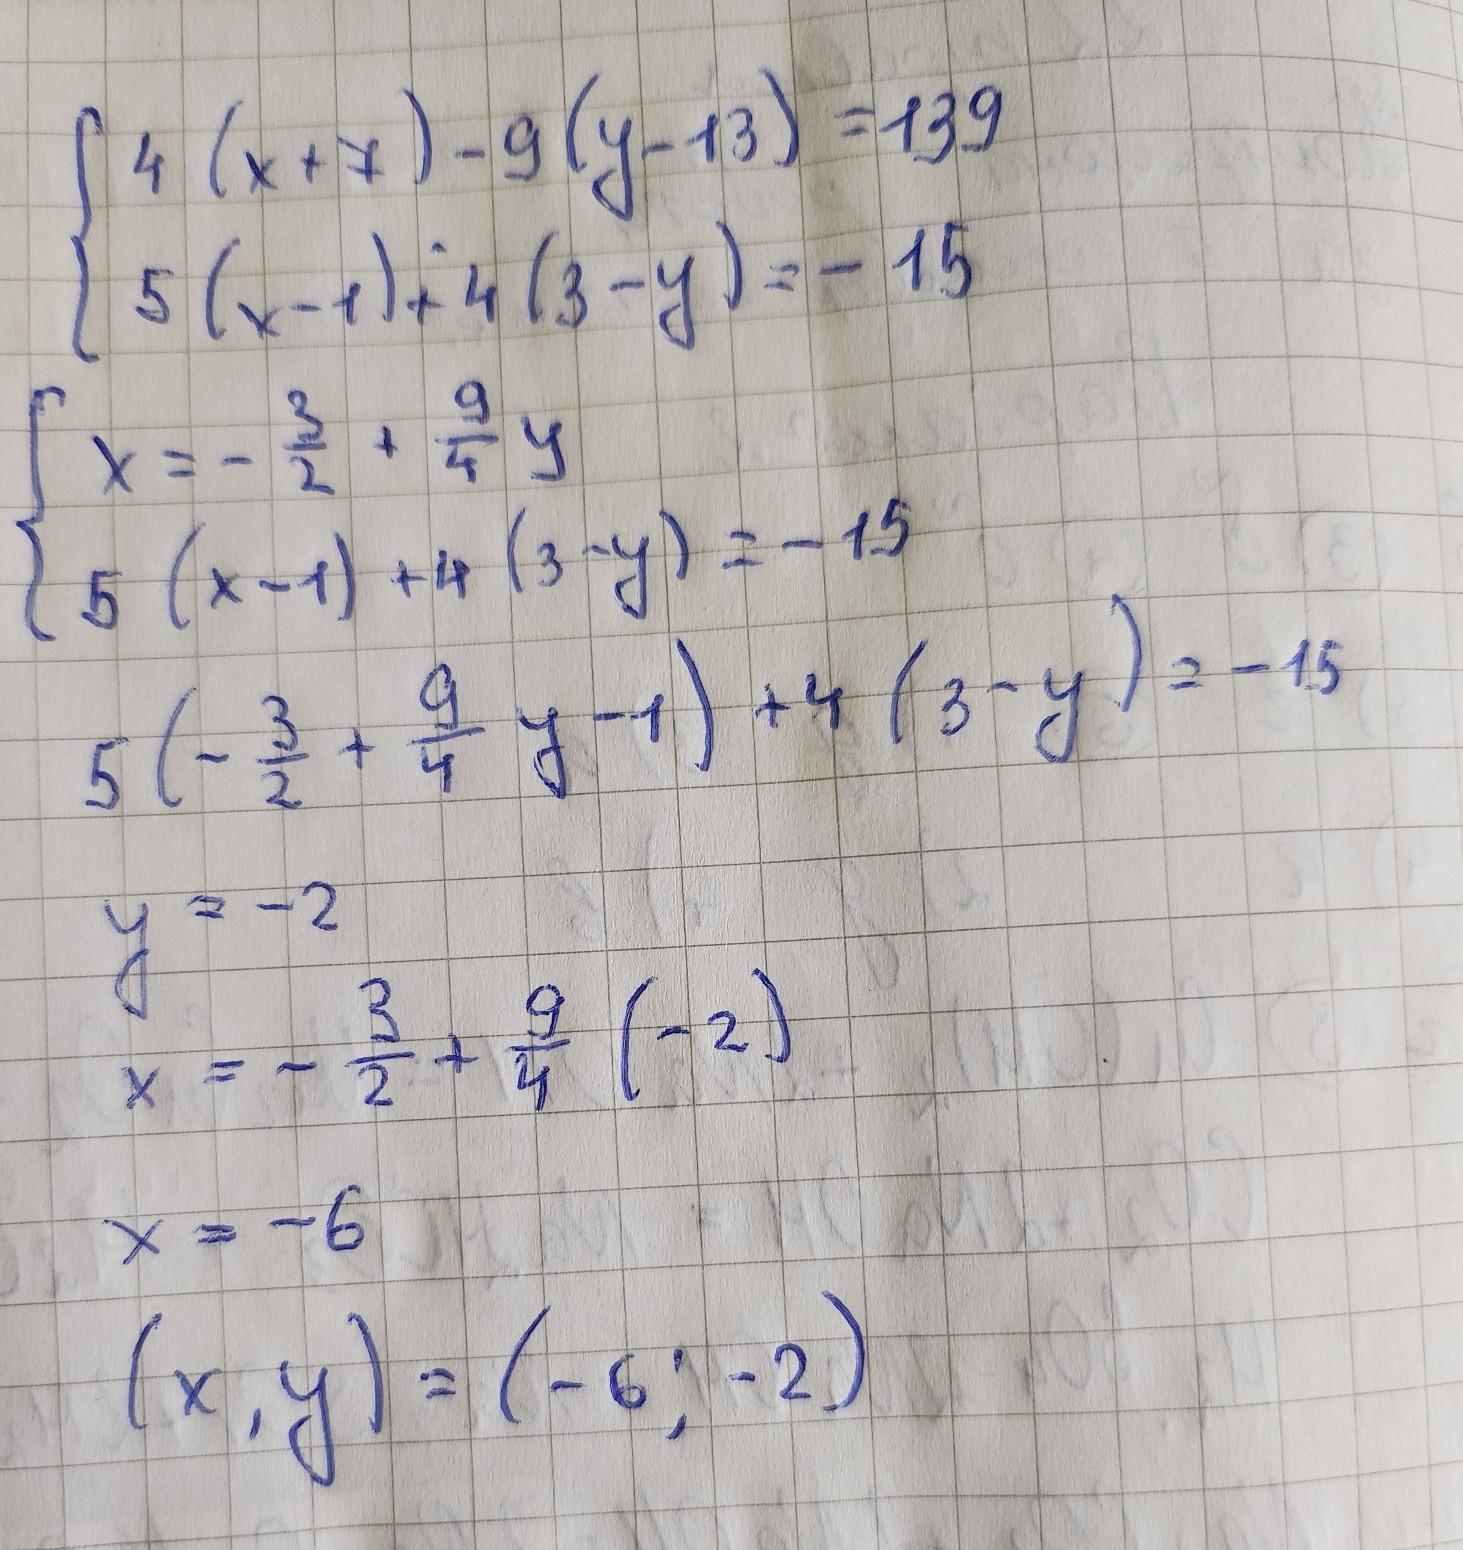 4 (x+7) - 9 (y-13) = 139
5 (x-1) + 4 (3-y) = - 15
x = - 3/2 + 9/4 y
5 (x-1) + 4 (3-y) = - 15
5 (- 3/2 + 9/4 y - 1) + 4 (3-y) = - 15
y = -2
x = - 3/2 + 9/4 (-2)
x = -6
(x, y) = (-6; -2)